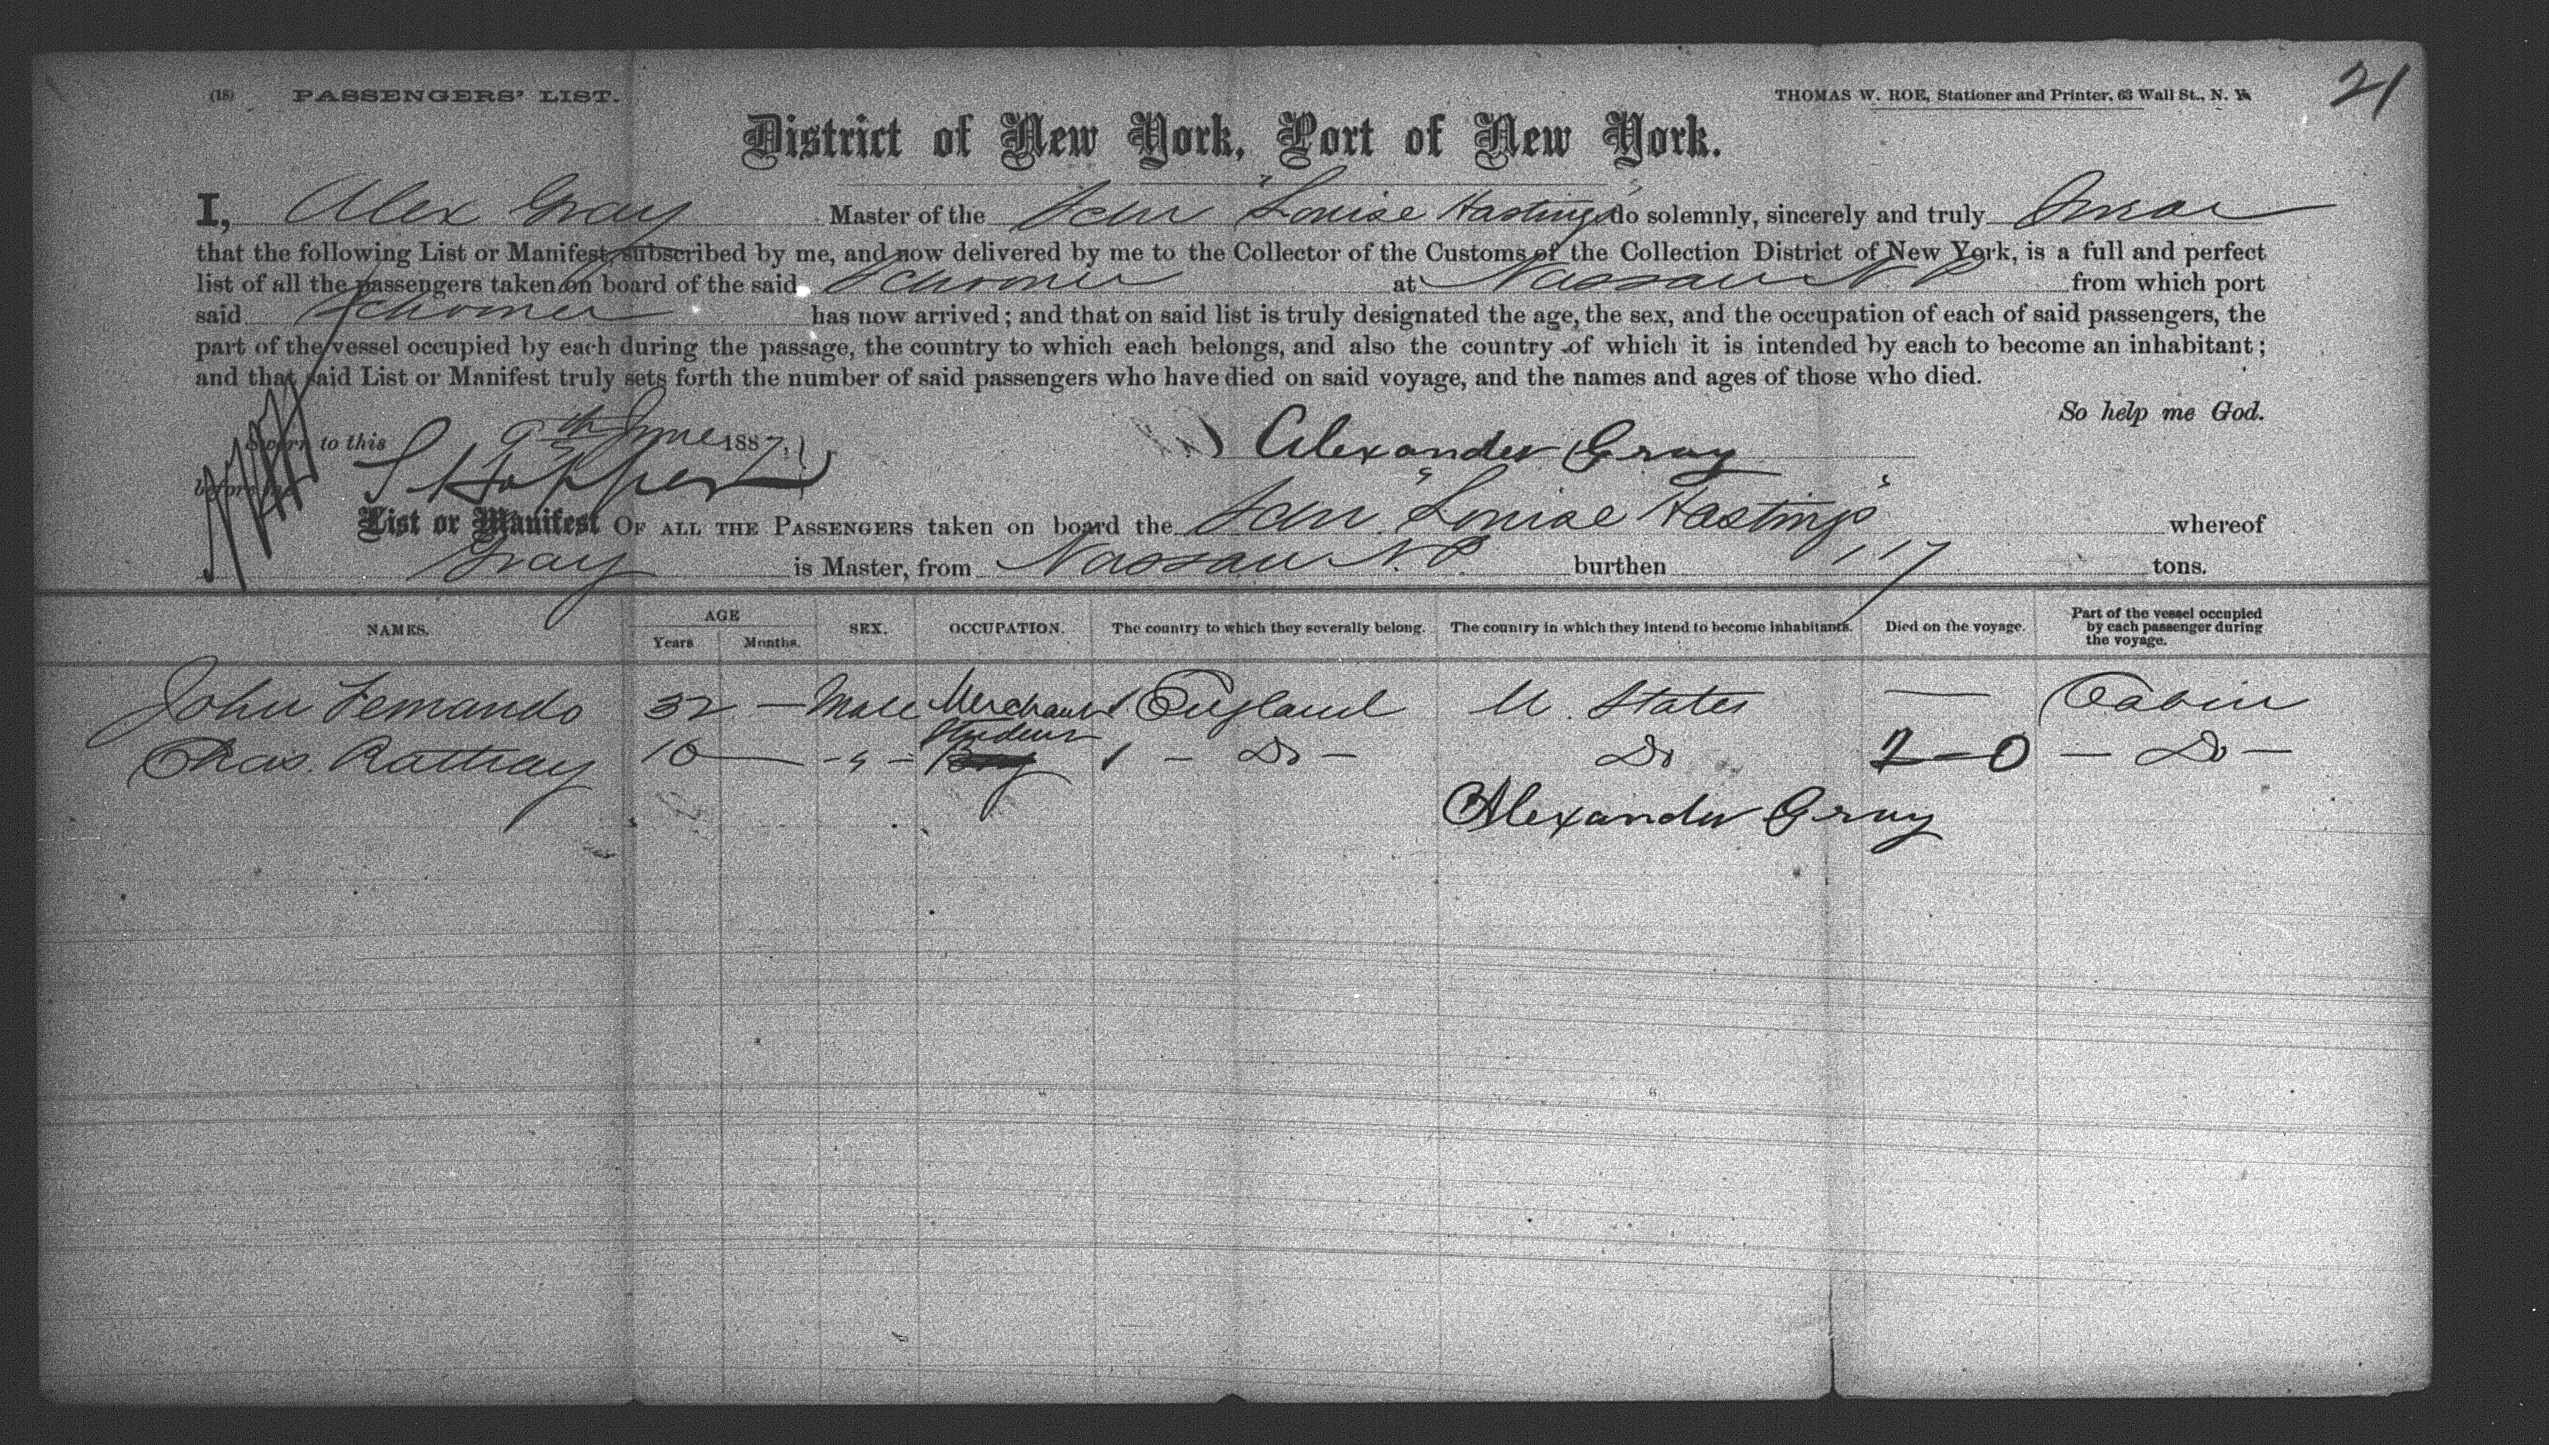 (18) PASSENGERS' LIST.
THOMAS W. ROE, Stationer and Printer, 63 Wall St., N. Y.
21
District of New York, Port of New York.
I, Alex Gray Master of the Schr "Louise Hastings" do solemnly, sincerely and truly Swear
that the following List or Manifest, subscribed by me, and now delivered by me to the Collector of the Customs of the Collection District of New York, is a full and perfect
list of all the passengers taken on board of the said Schooner at Nassau N. P. from which port
said Schooner has now arrived; and that on said list is truly designated the age, the sex, and the occupation of each of said passengers, the
part of the vessel occupied by each during the passage, the country to which each belongs, and also the country of which it is intended by each to become an inhabitant;
and that said List or Manifest truly sets forth the number of said passengers who have died on said voyage, and the names and ages of those who died.
So help me God.
Sworn to this 9th June 1887,
Alexander Gray
before me
List or Manifest OF ALL THE PASSENGERS taken on board the Schr "Louise Hastings" whereof
Gray is Master, from Nassau N. P. burthen 117 tons.
NAMES. AGE Years Months. SEX. OCCUPATION. The country to which they severally belong. The country in which they intend to become inhabitants. Died on the voyage. Part of the vessel occupied by each passenger during the voyage.
John Fernando 32 — Male Merchant / England U. States — Cabin
Student
Chas. Rattray 10 — - " - Boy / — Do — Do 2—0 — Do —
Alexander Gray